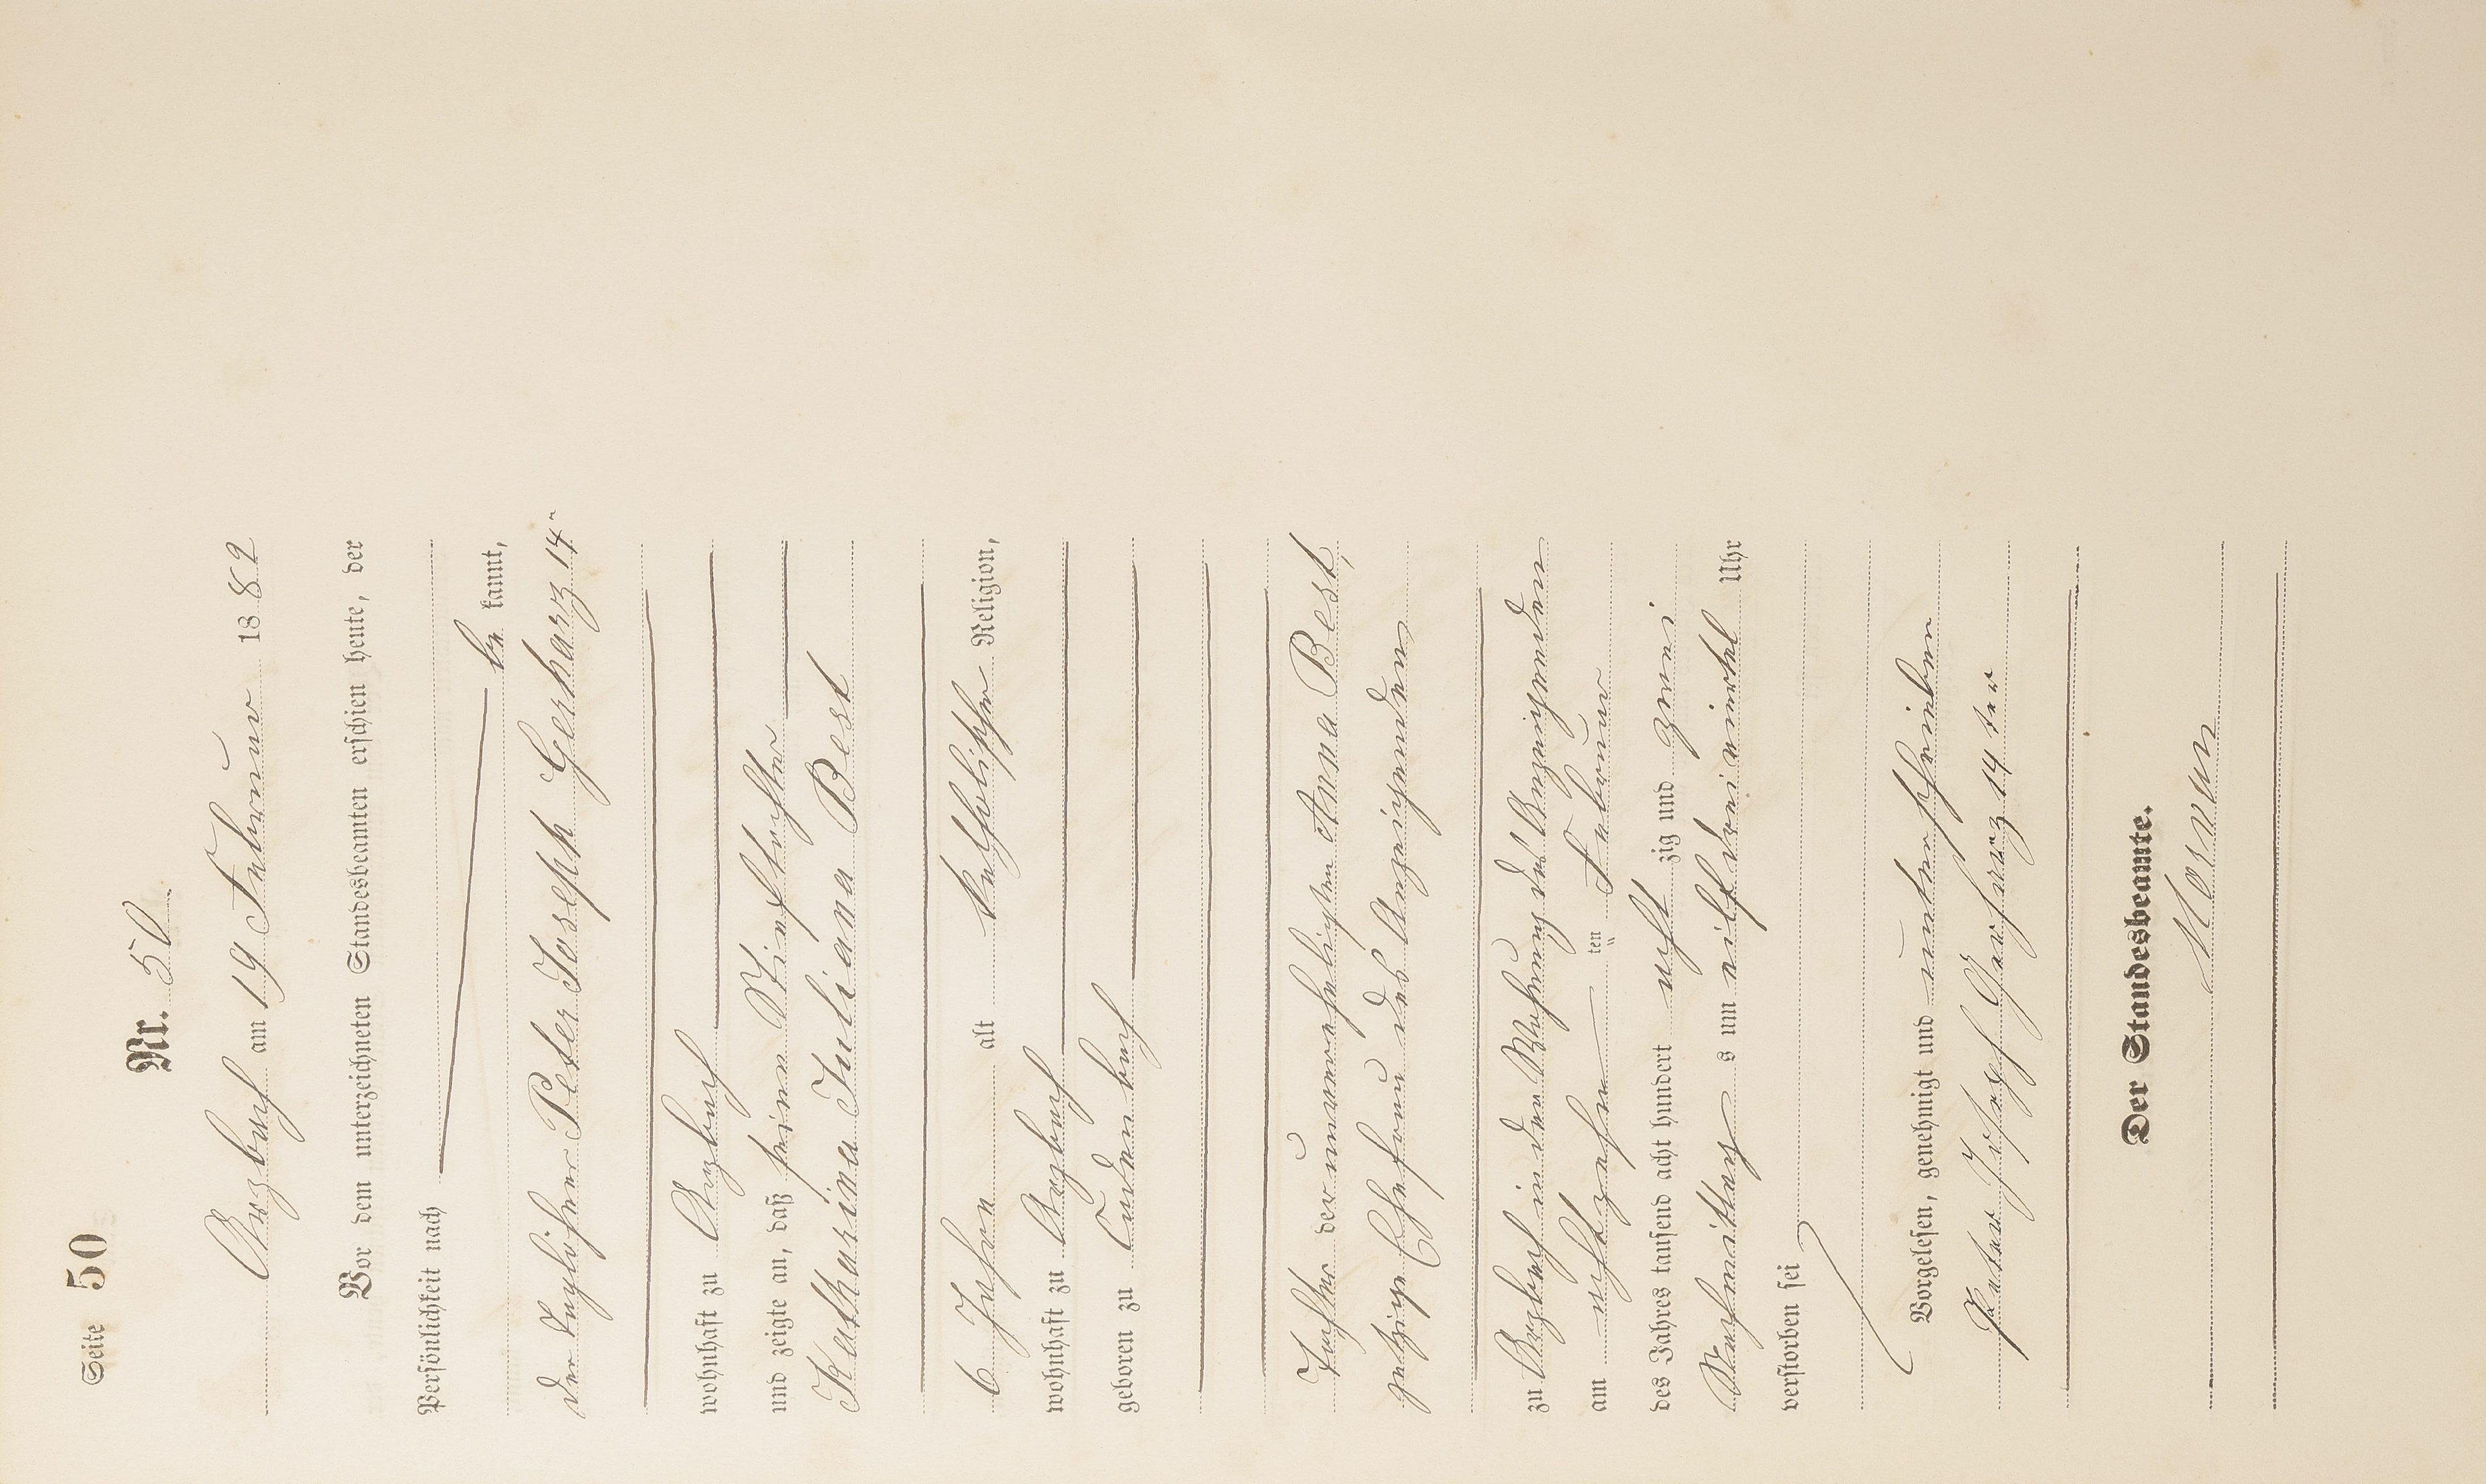 Seite 50
Nr. 50
Arzbach am 19 Februar 1882
Vor dem unterzeichneten Standesbeamten erschien heute, der
Persönlichkeit nach
be kannt,
der Taglöhner Peter Joseph Gerharz 14r
wohnhaft zu Arzbach
und zeigte an, daß seine Stieftochter
Katharina Juliana Best
6 Jahre alt katholischer Religion,
wohnhaft zu Arzbach
geboren zu Cadenbach
Tochter der unverehelichten Anna Best,
jetzige Ehefrau des Anzeigenden
zu Arzbach in der Wohnung des Anzeigenden
am achtzehn ten Februar
des Jahres tausend acht hundert acht zig und zwei
Nachmittag s um eilf dreiviertel Uhr
verstorben sei
Vorgelesen, genehmigt und unterschrieben
Peter Josef Gerharz 14 ter
Der Standesbeamte.